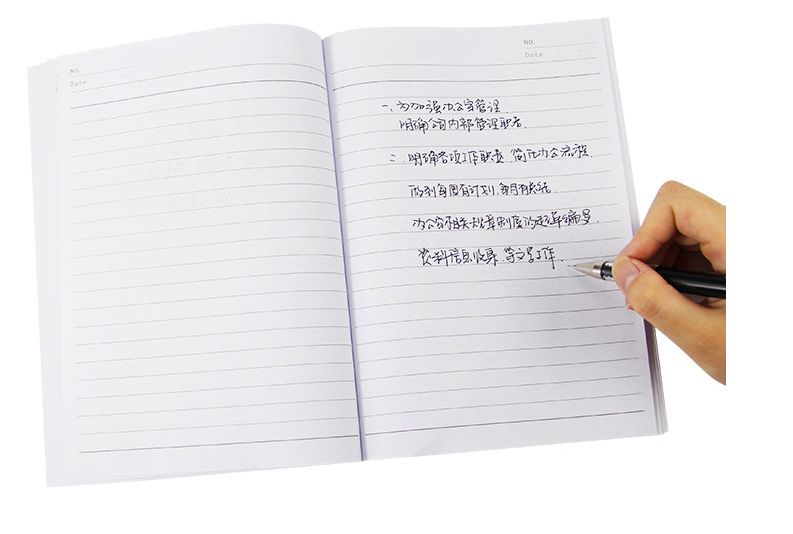 NO.
Date
NO.
Date
一、为加强办公室管理
明确公司内部管理职责
二、明确各项工作职责 简化办公流程.
做到每周有计划,每月有总结
办公室相关规章制度的起草编号.
资料信息收录 等文号工作.